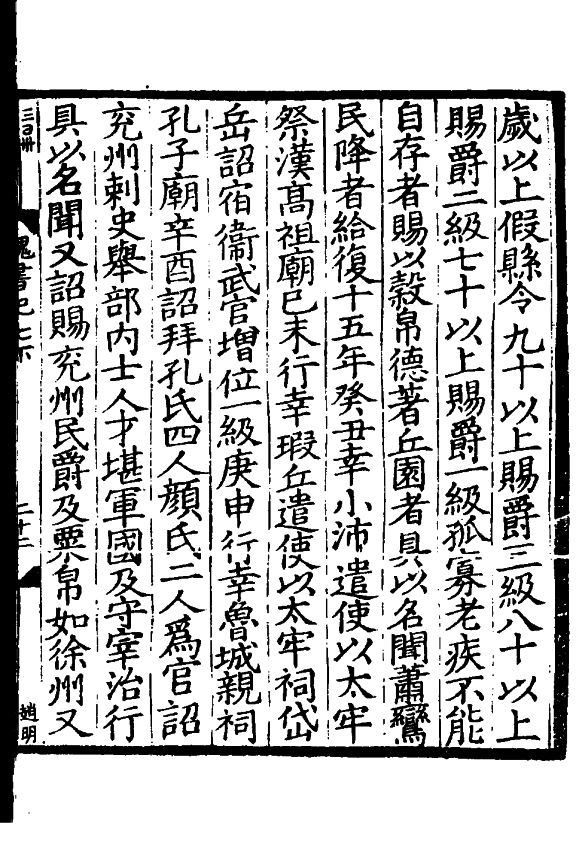 歲以上假縣令九十以上賜爵三級八十以上
賜爵二級七十以上賜爵一級孤寡老疾不能
自存者賜以穀帛德著丘園者具以名聞蕭鸞
民降者給復十五年癸丑幸小沛遣使以太牢
祭漢高祖廟己未行幸瑕丘遣使以太牢祠岱
岳詔宿衞武官增位一級庚申行幸魯城親祠
孔子廟辛酉詔拜孔氏四人顏氏二人爲官詔
兖州刺史舉部內士人才堪軍國及守宰治行
具以名聞又詔賜兖州民爵及粟帛如徐州又
魏書紀七下
二十二
趙明